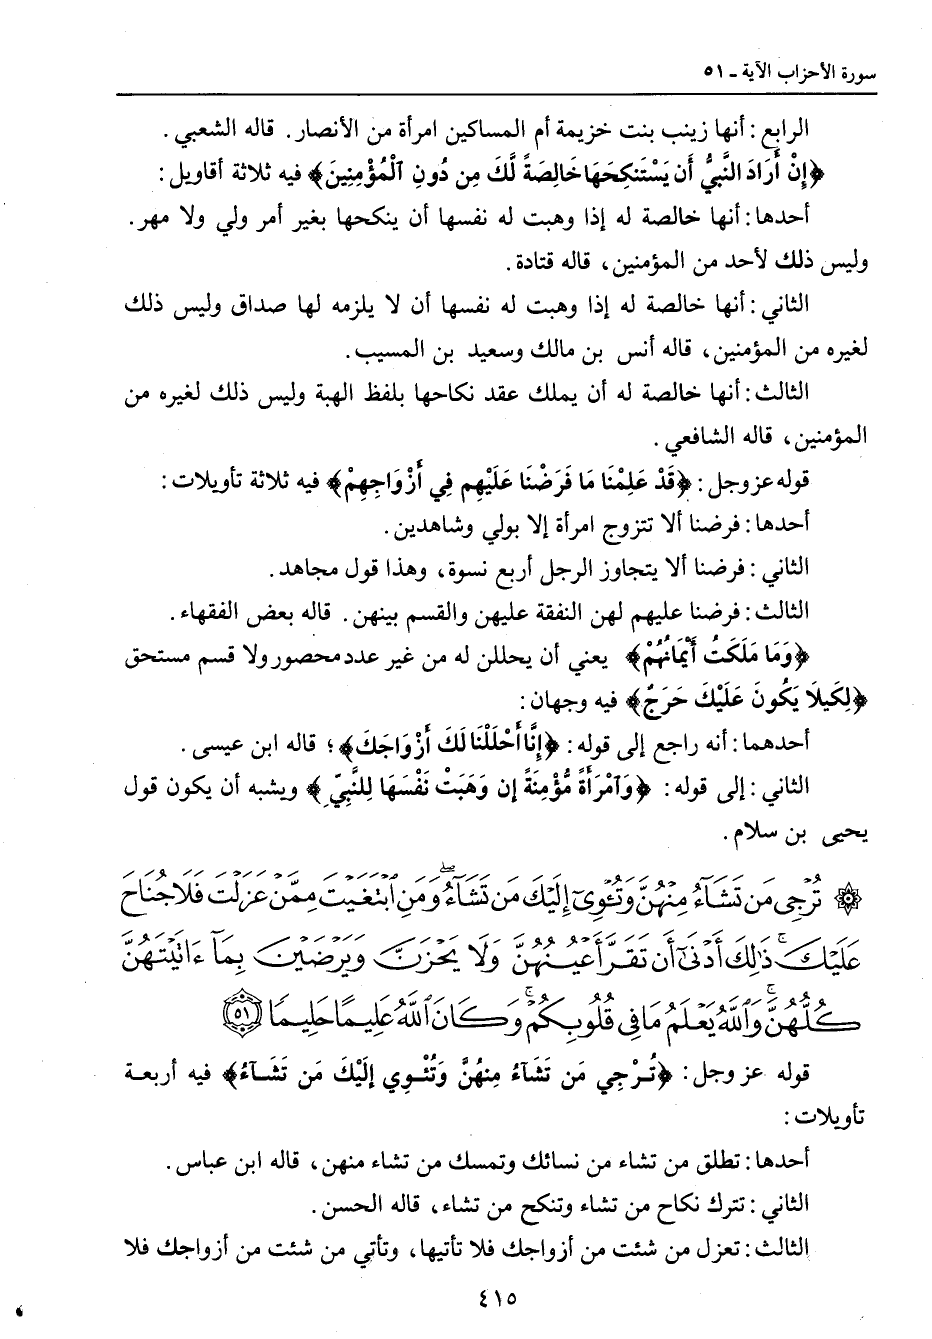 سورة الأحزاب الآية ـ ٥١
الرابع : أنها زينب بنت خزيمة أم المساكين امرأة من الأنصار. قاله الشعبي .
﴿إِنْ أَرَادَ النَّبِيُّ أَن يَسْتَنكِحَهَا خَالِصَةً لَّكَ مِن دُونِ الْمُؤْمِنِينَ﴾ فيه ثلاثة أقاويل :
أحدها : أنها خالصة له إذا وهبت له نفسها أن ينكحها بغير أمر ولي ولا مهر.
وليس ذلك لأحد من المؤمنين، قاله قتادة .
الثاني : أنها خالصة له إذا وهبت له نفسها أن لا يلزمه لها صداق وليس ذلك
لغيره من المؤمنين، قاله أنس بن مالك وسعيد بن المسيب .
الثالث : أنها خالصة له أن يملك عقد نكاحها بلفظ الهبة وليس ذلك لغيره من
المؤمنين، قاله الشافعي .
قوله عز وجل : ﴿قَدْ عَلِمْنَا مَا فَرَضْنَا عَلَيْهِم فِي أَزْوَاجِهِمْ﴾ فيه ثلاثة تأويلات :
أحدها : فرضنا ألا تتزوج امرأة إلا بولي وشاهدين .
الثاني : فرضنا ألا يتجاوز الرجل أربع نسوة، وهذا قول مجاهد .
الثالث : فرضنا عليهم لهن النفقة عليهن والقسم بينهن. قاله بعض الفقهاء .
﴿وَمَا مَلَكَتْ أَيْمَانُهُمْ﴾ يعني أن يحللن له من غير عدد محصور ولا قسم مستحق
﴿لِكَيلَا يَكُونَ عَلَيْكَ حَرَجٌ﴾ فيه وجهان :
أحدهما : أنه راجع إلى قوله : ﴿إِنَّا أَحْلَلْنَا لَكَ أَزْوَاجَكَ﴾ ؛ قاله ابن عيسى .
الثاني : إلى قوله : ﴿وَآمْرَأَةً مُّؤْمِنَةً إِن وَهَبَتْ نَفْسَهَا لِلنَّبِيِّ﴾ ويشبه أن يكون قول
يحيى بن سلام .
۞ تُرْجِى مَن تَشَآءُ مِنْهُنَّ وَتُـْٔوِىٓ إِلَيْكَ مَن تَشَآءُ ۖ وَمَنِ ٱبْتَغَيْتَ مِمَّنْ عَزَلْتَ فَلَا جُنَاحَ
عَلَيْكَ ۚ ذَٰلِكَ أَدْنَىٰٓ أَن تَقَرَّ أَعْيُنُهُنَّ وَلَا يَحْزَنَّ وَيَرْضَيْنَ بِمَآ ءَاتَيْتَهُنَّ
كُلُّهُنَّ ۚ وَٱللَّهُ يَعْلَمُ مَا فِى قُلُوبِكُمْ ۚ وَكَانَ ٱللَّهُ عَلِيمًا حَلِيمًا ٥١
قوله عز وجل : ﴿تُرْجِي مَن تَشَآءُ مِنهُنَّ وَتُئْوِي إِلَيْكَ مَن تَشَآءُ﴾ فيه أربعة
تأويلات :
أحدها : تطلق من تشاء من نسائك وتمسك من تشاء منهن، قاله ابن عباس .
الثاني : تترك نكاح من تشاء وتنكح من تشاء، قاله الحسن .
الثالث : تعزل من شئت من أزواجك فلا تأتيها، وتأتي من شئت من أزواجك فلا
٤١٥